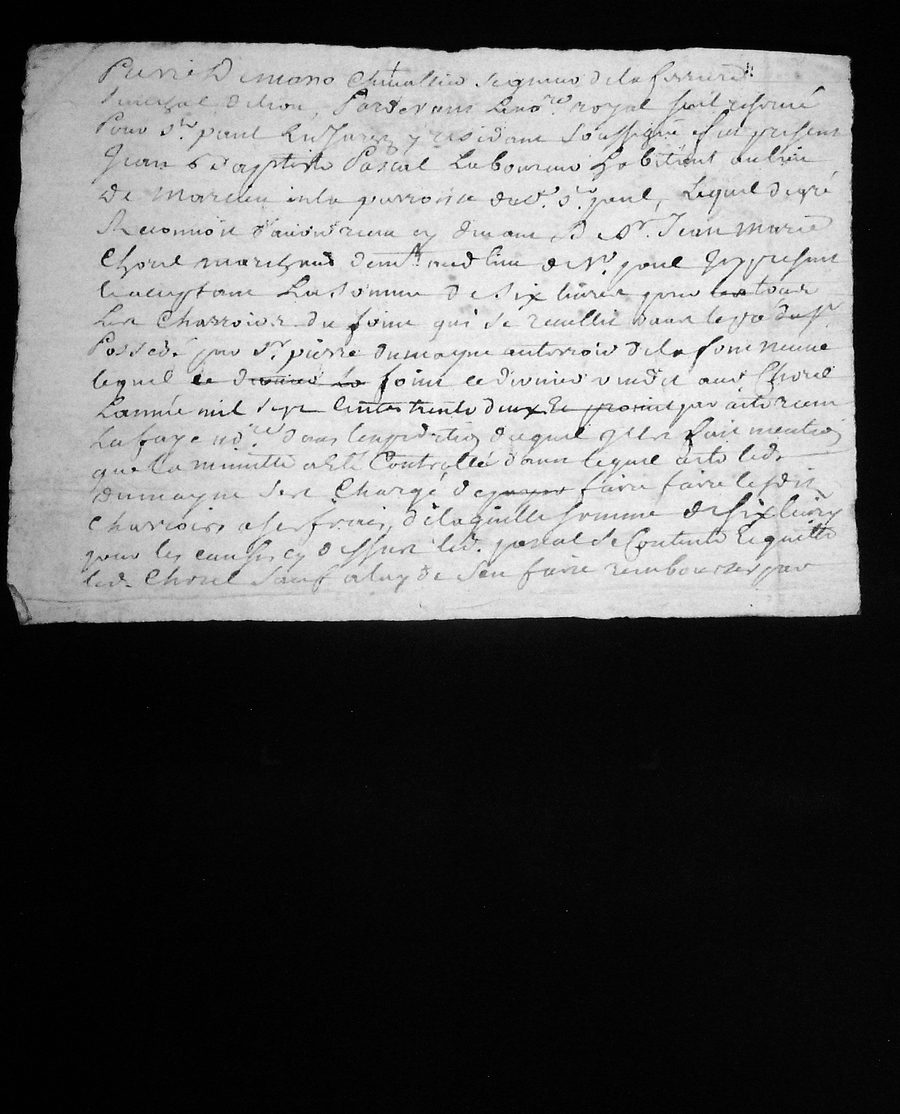 Pierre Demono Chevallier seigneur de la ferriere
senechal de lion, Pardevant le no.re royal soit reservé
Pour St. paul En Jarez y residant soussigné fut present
Jean Baptiste Pascal Laboureur habitant au lieu
De marcieu en la parroisse dud. St. paul, Lequel de gré
A reconnoit d'avoir receu cy devant De Sr. Jean marie
Chorel marchand dem.t aud. lieu de St. paul Icy present
Et acceptant La somme de six livres pour les tous
Les Charrois du foint qui se recullit dans le pré du Sr.
Possedé par Sr. pierre dumayne au terroir de la font
lequel ce dernier la foint ce dernier vendit aud. Chorel
L'année mil sept Cents trente deux Et par acte receu
Lafaye no.re dans l'expedition duquel Il Est fait mention
que La minutte a Esté Controllée dans lequel acte led.
Dumayne sest Chargé de payer faire faire lesdits
Charrois a ses frais, de laquelle somme de six livres
pour les causes cy dessus led. pascal se Contente Et quitte
led. Chorel sauf a luy de sen faire rembourser par